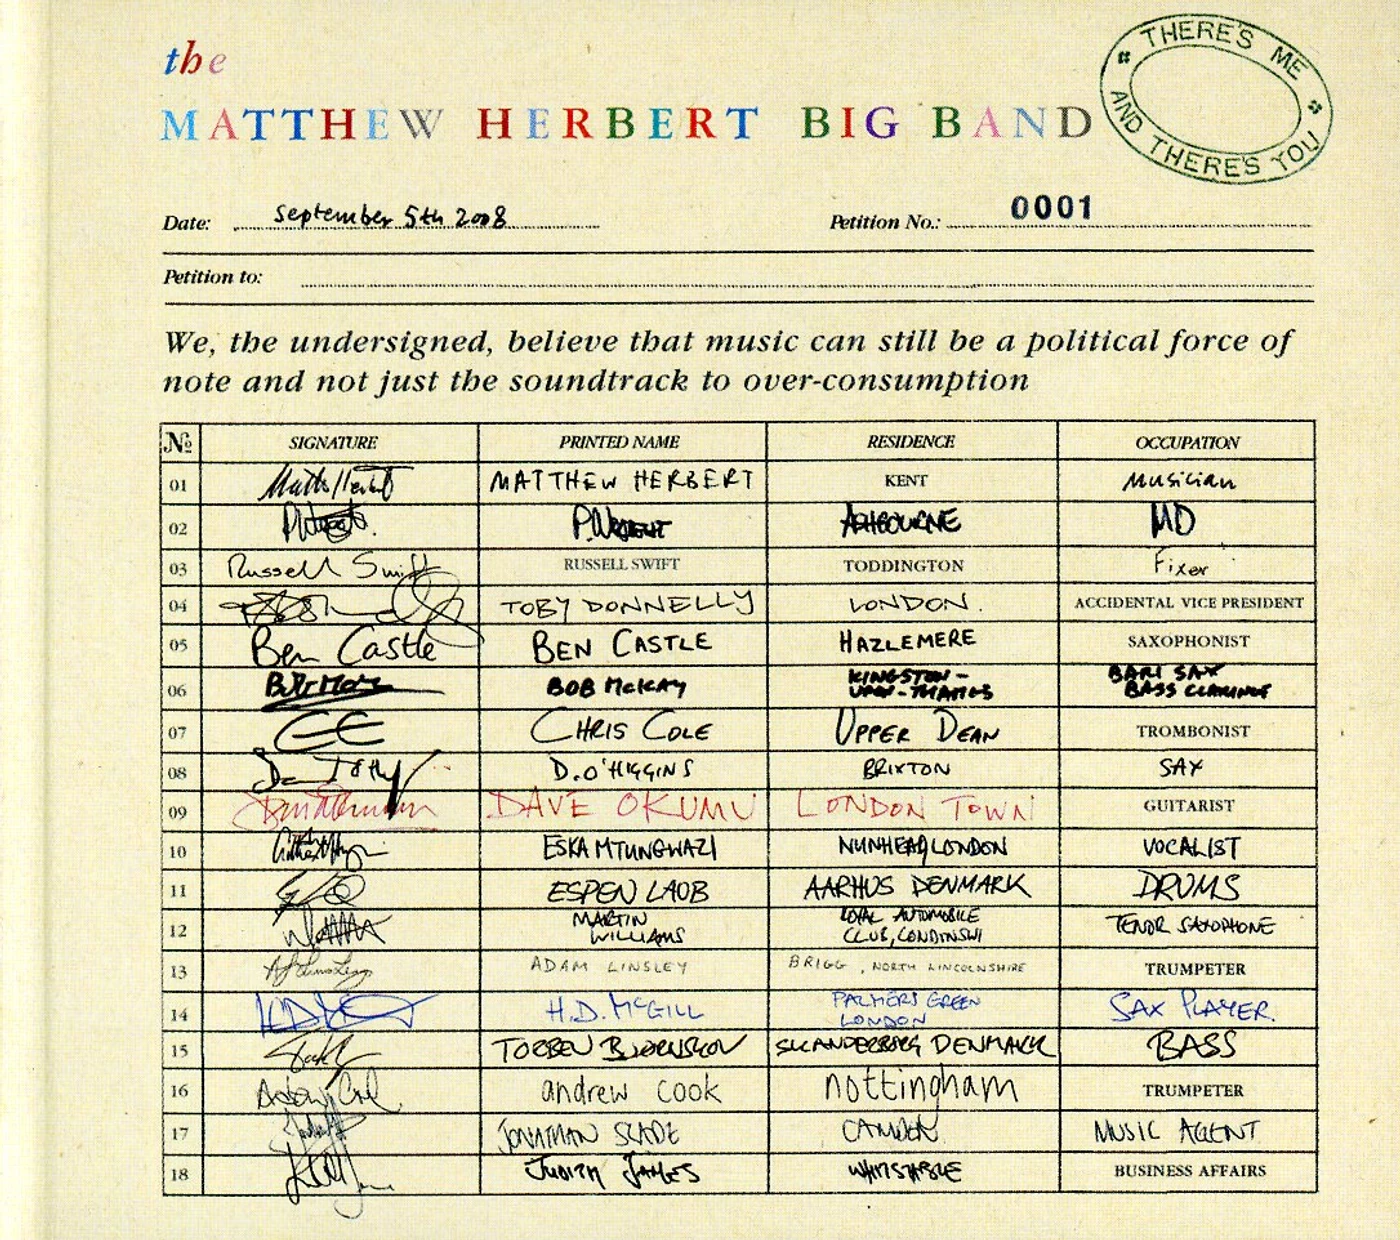 the
MATTHEW HERBERT BIG BAND
THERE'S ME AND THERE'S YOU
Date: September 5th 2008 Petition No.: 0001
Petition to:
We, the undersigned, believe that music can still be a political force of
note and not just the soundtrack to over-consumption
№ SIGNATURE PRINTED NAME RESIDENCE OCCUPATION
01 MATTHEW HERBERT KENT Musician
02 ASHBOURNE MD
03 Russell Swift RUSSELL SWIFT TODDINGTON Fixer
04 TOBY DONNELLY LONDON. ACCIDENTAL VICE PRESIDENT
05 Ben Castle BEN CASTLE HAZLEMERE SAXOPHONIST
06 BOB McKAY KINGSTON- BARI SAX
UPON-THAMES BASS CLARINET
07 CHRIS COLE UPPER DEAN TROMBONIST
08 D. O'HIGGINS BRIXTON SAX
09 DAVE OKUMU LONDON TOWN GUITARIST
10 ESKA MTUNGWAZI NUNHEAD, LONDON VOCALIST
11 ESPEN LAUB AARHUS DENMARK DRUMS
12 MARTIN ROYAL AUTOMOBILE TENOR SAXOPHONE
WILLIAMS CLUB, LONDON SW1
13 ADAM LINSLEY BRIGG, NORTH LINCOLNSHIRE TRUMPETER
14 H.D. McGILL PALMERS GREEN SAX PLAYER.
LONDON
15 TORBEN BJØRNSKOV SKANDERBORG DENMARK BASS
16 andrew cook nottingham TRUMPETER
17 JONATHAN SLADE CAMDEN MUSIC AGENT
18 JUDITH JAMES WHITSTABLE BUSINESS AFFAIRS